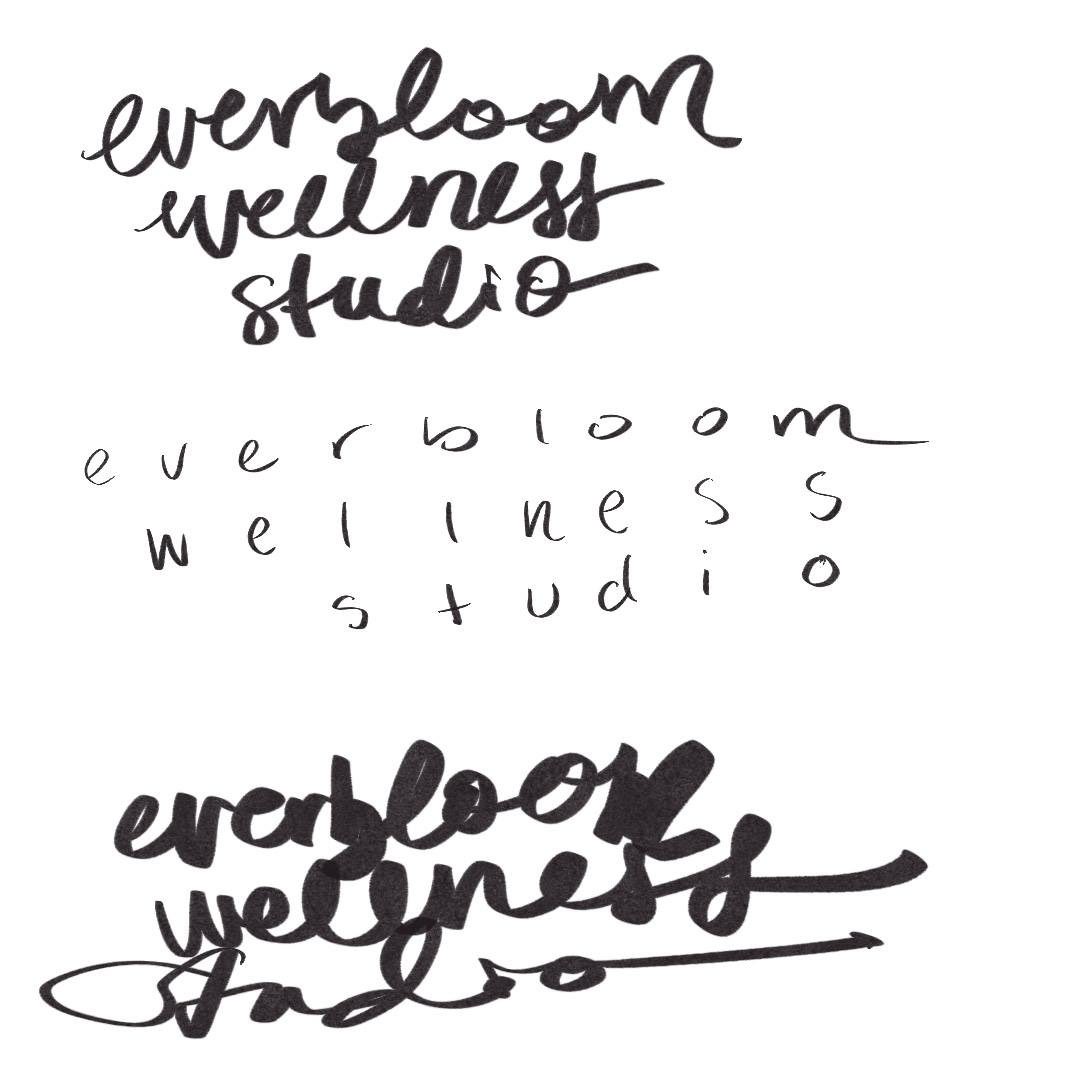 everbloom
wellness
studio
everbloom
wellness
studio
everbloom
wellness
studio